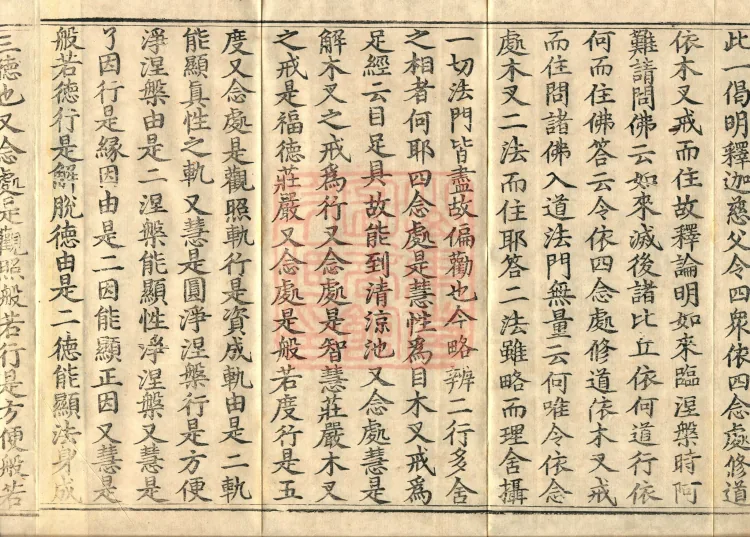 此一偈明釋迦慈父令四衆依四念處修道
依木叉戒而住故釋論明如來臨涅槃時阿
難請問佛云如來滅後諸比丘依何道行依
何而住佛答云令依四念處修道依木叉戒
而住問諸佛入道法門無量云何唯令依念
處木叉二法而住耶答二法雖略而理舍攝
一切法門皆盡故偏勸也今略辨二行多舍
之相者何耶四念處是慧性爲目木叉戒爲
足經云目足具故能到清涼池又念處慧是
解木叉之戒爲行又念處是智慧莊嚴木叉
之戒是福德莊嚴又念處是般若度行是五
度又念處是觀照軌行是資成軌由是二軌
能顯眞性之軌又慧是圓淨涅槃行是方便
淨涅槃由是二涅槃能顯性淨涅槃又慧是
了因行是緣因由是二因能顯正因又慧是
般若德行是解脫德由是二德能顯法身成
三德也又念處是觀照般若行是方便般若